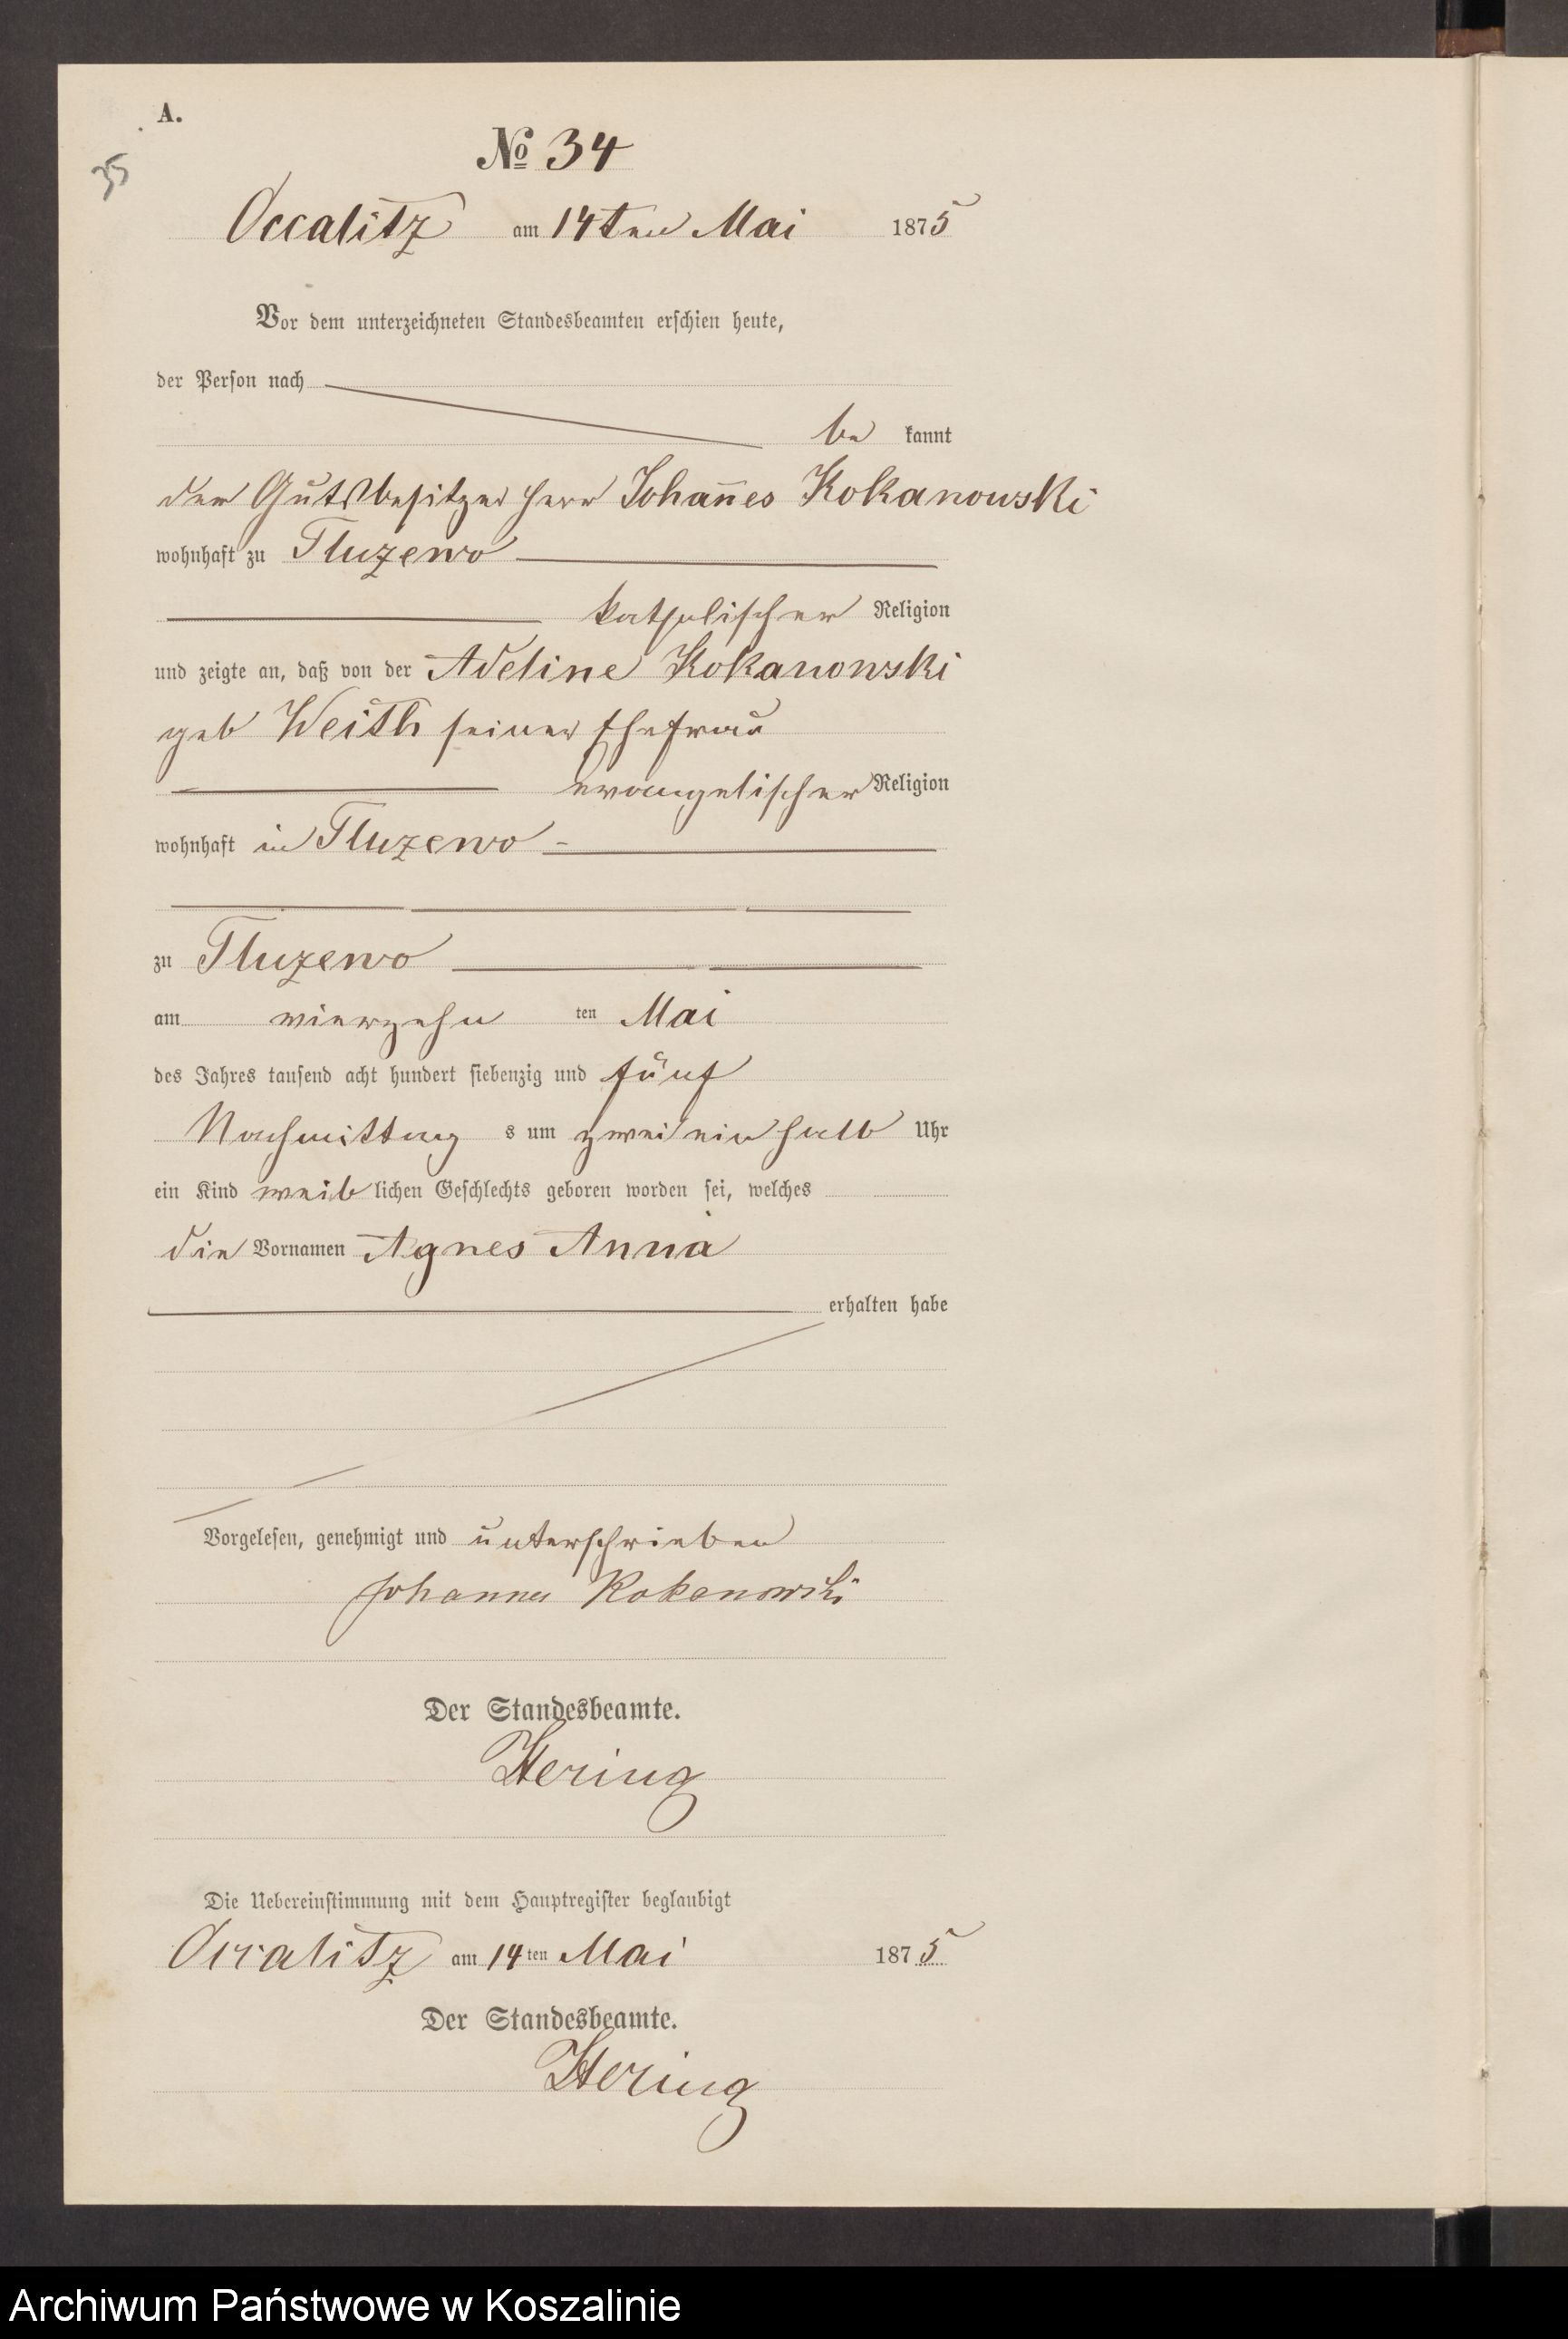 A.
35
№ 34
Occalitz am 14ten Mai 1875
Vor dem unterzeichneten Standesbeamten erschien heute,
der Person nach
be kannt
der Gutsbesitzer Herr Johañes Kokanowski
wohnhaft zu Tluzewo
katholischer Religion
und zeigte an, daß von der Adeline Kokanowski
geb Weith seiner Ehefrau
evangelischer Religion
wohnhaft in Tluzewo
zu Tluzewo
am vierzehn ten Mai
des Jahres tausend acht hundert siebenzig und fünf
Nachmittag s um zwei ein halb Uhr
ein Kind weib lichen Geschlechts geboren worden sei, welches
die Vornamen Agnes Anna
erhalten habe
Vorgelesen, genehmigt und unterschrieben
Johannes Kokanowski
Der Standesbeamte.
Hering
Die Uebereinstimmung mit dem Hauptregister beglaubigt
Occalitz am 14ten Mai 1875
Der Standesbeamte.
Hering
Archiwum Państwowe w Koszalinie